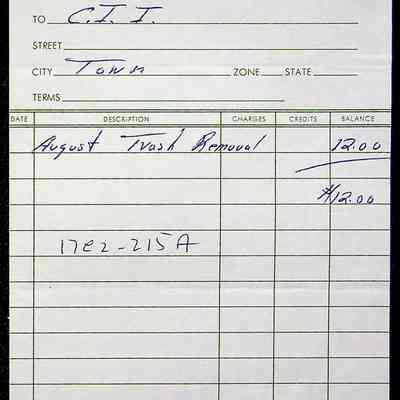 TO C.I.I.
STREET
CITY Town ZONE STATE
TERMS
DATE DESCRIPTION CHARGES CREDITS BALANCE
August Trash Removal 12.00
$12.00
17E2-215A